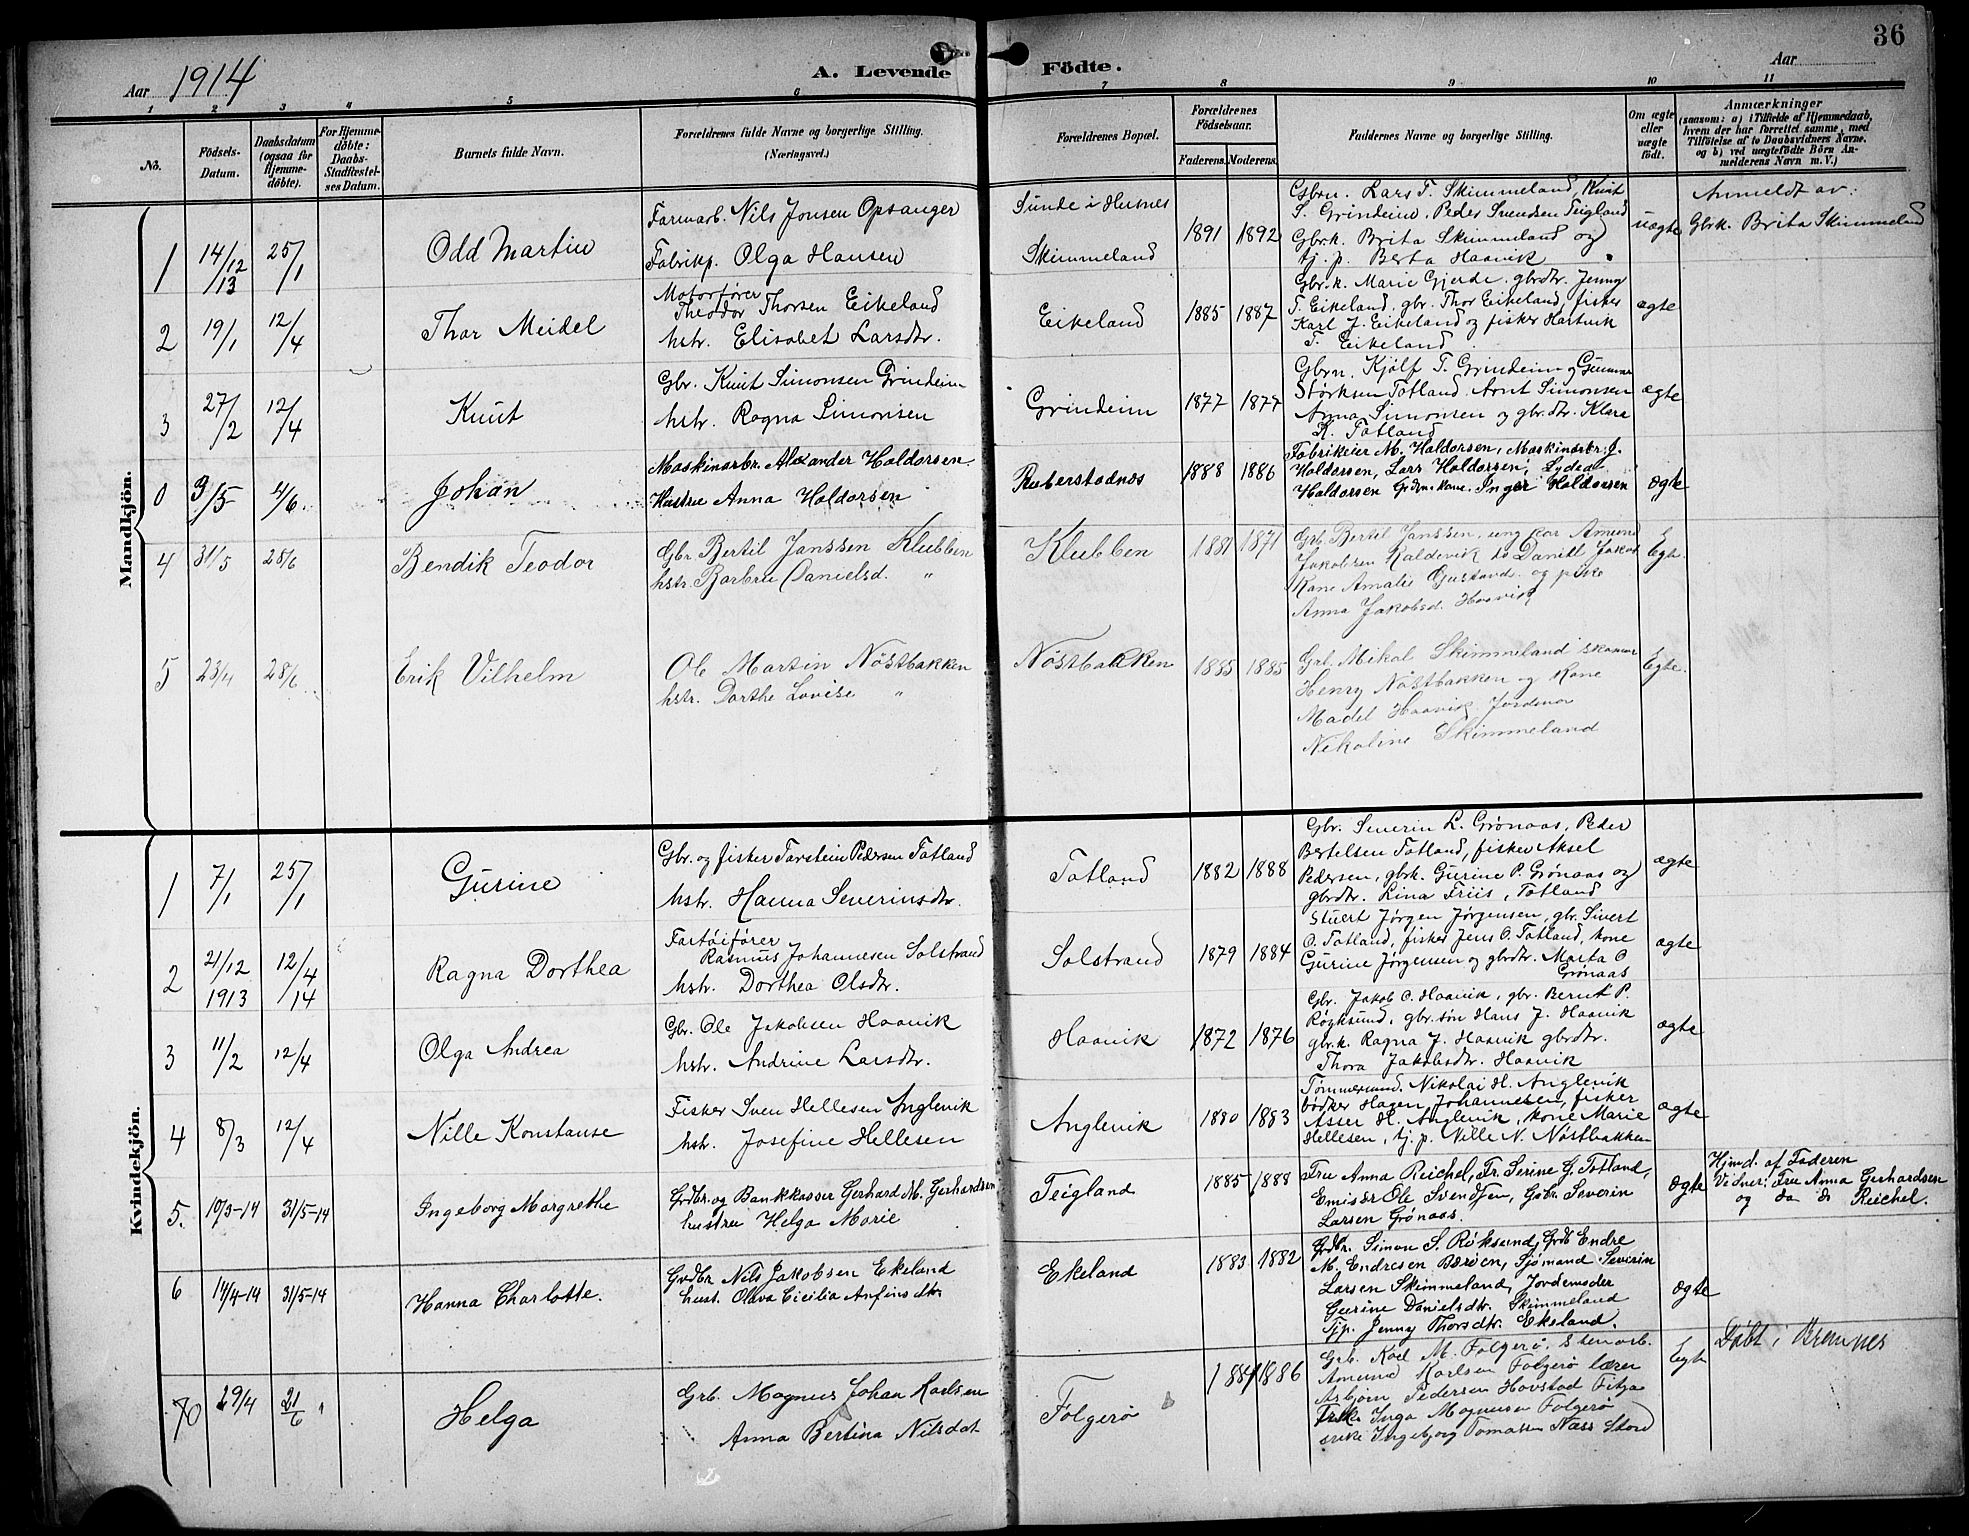 36
Aar 1914
A. Levende Födte.
Aar
1 2 3 4 5 6 7 8 9 10 11
No.
Födsels-Datum.
Daabsdatum (ogsaa for Hjemme-döbte).
For Hjemme-döbte: Daabs-Stadfæstel-ses Datum.
Barnets fulde Navn.
Forældrenes fulde Navne og borgerlige Stilling.
(Næringsvei.)
Forældrenes Bopæl.
Forældrenes Födselsaar.
Faderens. Moderens.
Faddernes Navne og borgerlige Stilling.
Om ægte eller uægte födt.
Anmærkninger
(saasom: a) i Tilfælde af Hjemmedaab,
hvem der har forrettet samme, med
Tilföielse af to Daabsvidners Navne,
og b) ved uægtefödte Börn An-
melderens Navn m. V.)
Mandkjön.
1 14/12 13 25/1 Odd Martin
Farvearb. Nils Jonsen Opsanger
Fabrikp. Olga Hansen
Sunde i Husnes
Skimmeland
1891 1892
Gbrn. Lars T. Skimmeland, Knut
S. Grindeim, Peder Svendsen Teigland
Gbrk. Brita Skimmeland og
tj. p. Berta Haavik
uægte
Anmeldt av:
Gbrk. Brita Skimmeland
2 19/1 12/4 Thor Meidel
Motorfører
Theodor Thorsen Eikeland
hstr. Elisabet Larsdtr.
Eikeland
1885 1887
Gbr.k. Marie Gjerde, gbrdtr. Jenny
T. Eikeland, gbr. Thor Eikeland, fisker
Karl J. Eikeland og fisker Hartvik
T. Eikeland
ægte
3 27/2 12/4 Knut
Gbr. Knut Simonsen Grindeim
hstr. Ragna Simonsen
Grindeim
1877 1877
Gbrn. Kjølf T. Grindeim og Gunnar
Størksen Totland, Arnt Simonsen
Anna Simonsen og gbr.dtr. Klara
K. Totland
ægte
0 9/5 4/6 Johan
Maskinarbr. Alexander Haldorsen
Hustru Anna Haldorsen
Rubbestadnæs
1888 1886
Fabrikeier M. Haldorsen, Maskinarbr. J.
Haldorsen, Lars Haldorsen, Lydia
Haldorsen Grdm. kone Inger Haldorsen
ægte
4 31/5 28/6 Bendik Teodor
Gbr Bertil Janssen Klubben
hstr. Barbru Danielsd. "
Klubben
1881 1871
Grb. Bertil Janssen, ung kar Amund
Jakobsen Kaldevik do Daniel Jakob
Kone Amalie Gustavd. og pike
Anna Jakobsd. Haavik
Egte
5 23/4 28/6 Erik Vilhelm
Ole Martin Nöstbakken
hstr. Dorthe Lovise "
Nöstbakken
1885 1885
Grb. Mikal Skimmeland
Henry Nöstbakken og Kone
Madel Haavik Jordmor
Nikoline Skimmeland
Egte
Kvindekjön.
1 7/1 25/1 Gurine
Gbr. og fisker Torstein Pedersen Totland
hstr. Hanna Severinsdtr.
Totland
1882 1888
Gbr. Severin L. Grønaas, Peder
Bertelsen Totland, fisker Aksel
Pedersen, gbrk. Gurine P. Grønaas og
gbrdtr. Lina Friis, Totland
ægte
2 21/12 1913 12/4 14 Ragna Dorthea
Fartøifører
Rasmus Johannesen Solstrand
hstr. Dorthea Olsdtr.
Solstrand
1879 1884
Stuert Jørgen Jørgensen, gbr. Sivert
O. Totland, fisker Jens O. Totland, kone
Gurine Jørgensen og gbrdtr. Marta O
Grønaas
ægte
3 11/2 12/4 Olga Andrea
Gbr. Ole Jakobsen Haavik
hstr. Andrine Larsdtr.
Haavik
1872 1876
Gbr. Jakob O. Haavik, gbr. Bernt P.
Røksund, gbr.søn Hans J. Haavik
gbr.k. Ragna J. Haavik gbrdtr.
Thora Jakobsdtr. Haavik
ægte
4 8/3 12/4 Nille Konstanse
Fisker Sven Hellesen Anglevik
hstr. Josefine Hellesen
Anglevik
1880 1883
Tømmermand. Nikolai H. Anglevik
bødker Hagen Johannesen, fisker
Asser H. Anglevik, kone Marie
Hellesen, tj. p. Nille N. Nøstbakken
ægte
5. 10/3-14 31/5-14 Ingeborg Margrethe
Grdbr. og Bankkasser Gerhard M. Gerhardsen
hustru Helga Marie
Teigland
1885 1888
Fru Anna Reichel, Fr. Serine G. Totland,
Emisær Ole Svendsen, Gbr. Severin
Larsen Grønaas.
ægte
Hjmd. af Faderen
Vidner: Fru Anna Gerhardsen
og do do Reichel.
6 14/4-14 31/5-14 Hanna Charlotte.
Grdbr Nils Jakobsen Ekeland
hust. Olava Cicilia Anfinsdtr
Ekeland
1883 1882
Grdbr. Simon S. Røksund, Grdb Endre
M. Endresen Børøen, Sjømand Severin
Larsen Skimmeland, Jordemoder
Gurine Danielsdtr. Skimmeland
Tjp. Jenny Thorsdtr. Ekeland.
ægte
70 29/4 21/6 Helga
Grb. Magnus Johan Karlsen
Anna Bertina Nilsdat
Folgerö
1884 1886
Grb. Karl M. Folgerö, Stenarb.
Amund Karlsen Folgerö lærer
Asbjörn Pedersen Hovstad Fitja
Inga Magnusen Folgerö
Ingebjorg Tomassen Næss Stord
Egte
Döbt i Bremnes